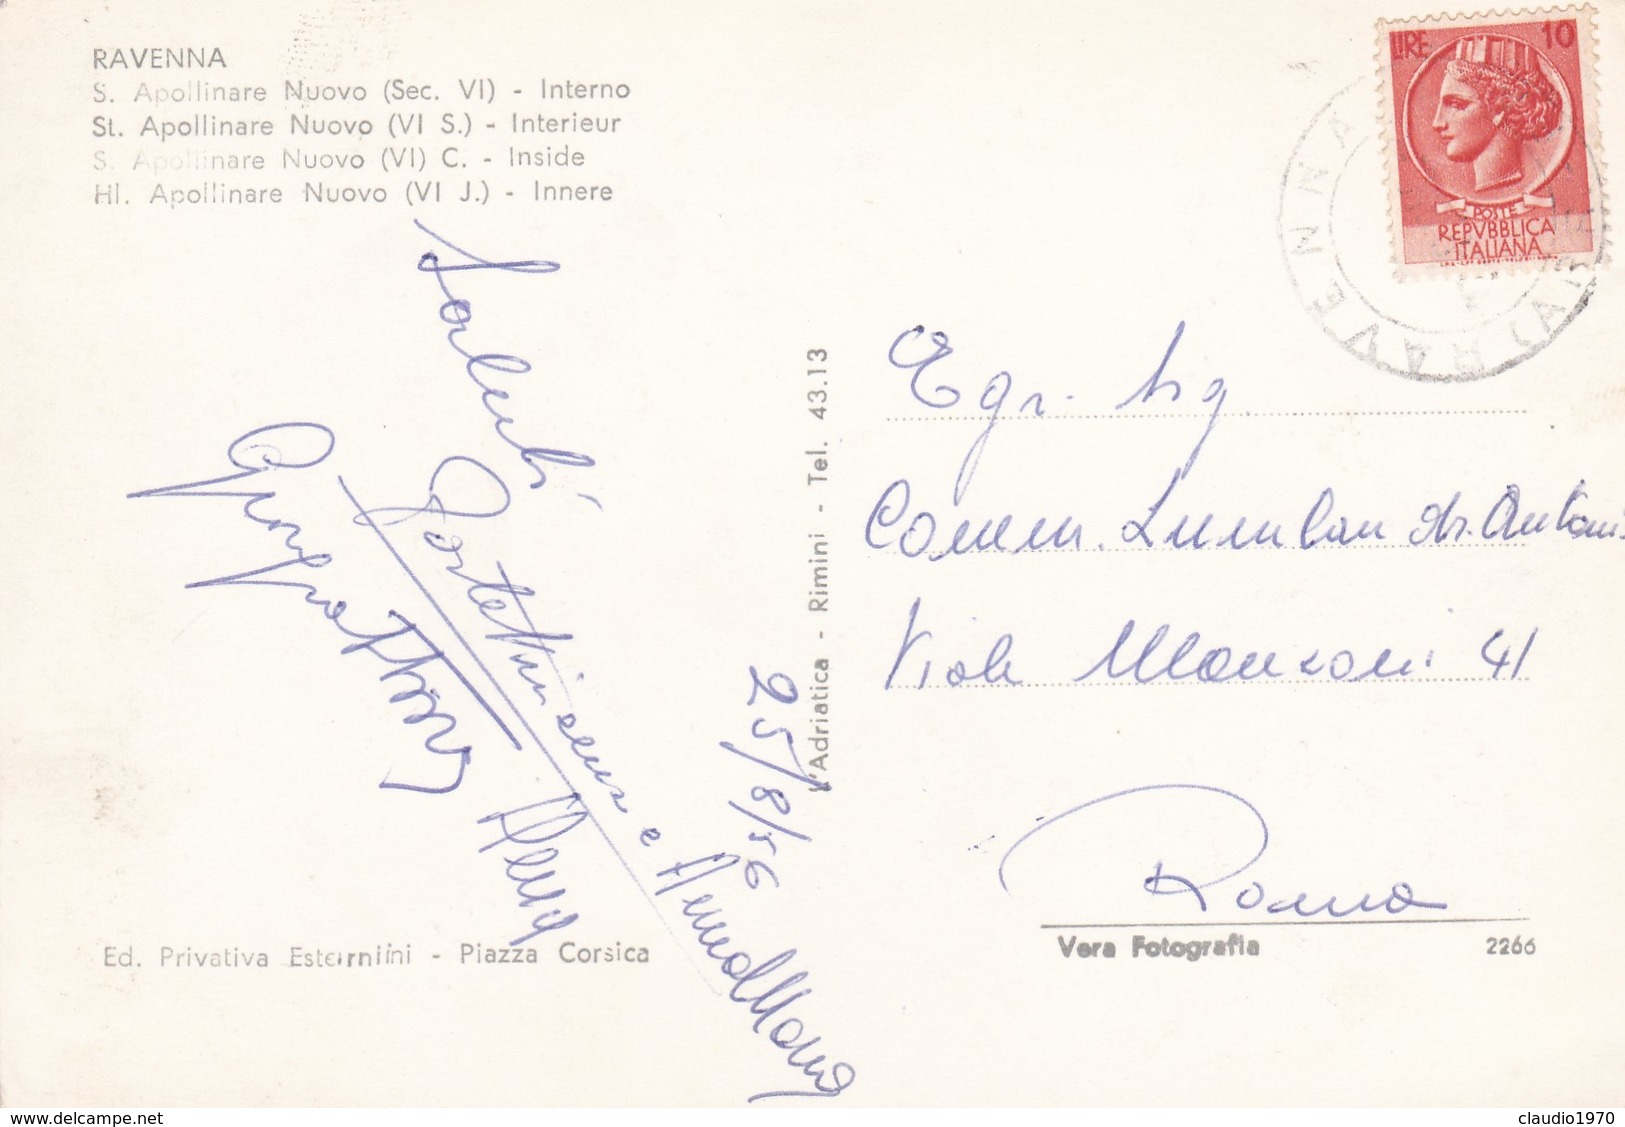 RAVENNA
S. Apollinare Nuovo (Sec. VI) - Interno
St. Apollinare Nuovo (VI S.) - Interieur
S. Apollinare Nuovo (VI) C. - Inside
Hl. Apollinare Nuovo (VI J.) - Innere
LIRE 10
POSTE
REPVBBLICA
ITALIANA
RAVENNA
Saluti
e
25/8/56
L'Adriatica - Rimini - Tel. 43.13
Egr. Sig
Comm. dr. Antoni
Viale Manzoni 41
Roma
Ed. Privativa Esternini - Piazza Corsica
Vera Fotografia 2266
www.delcampe.net
claudio1970